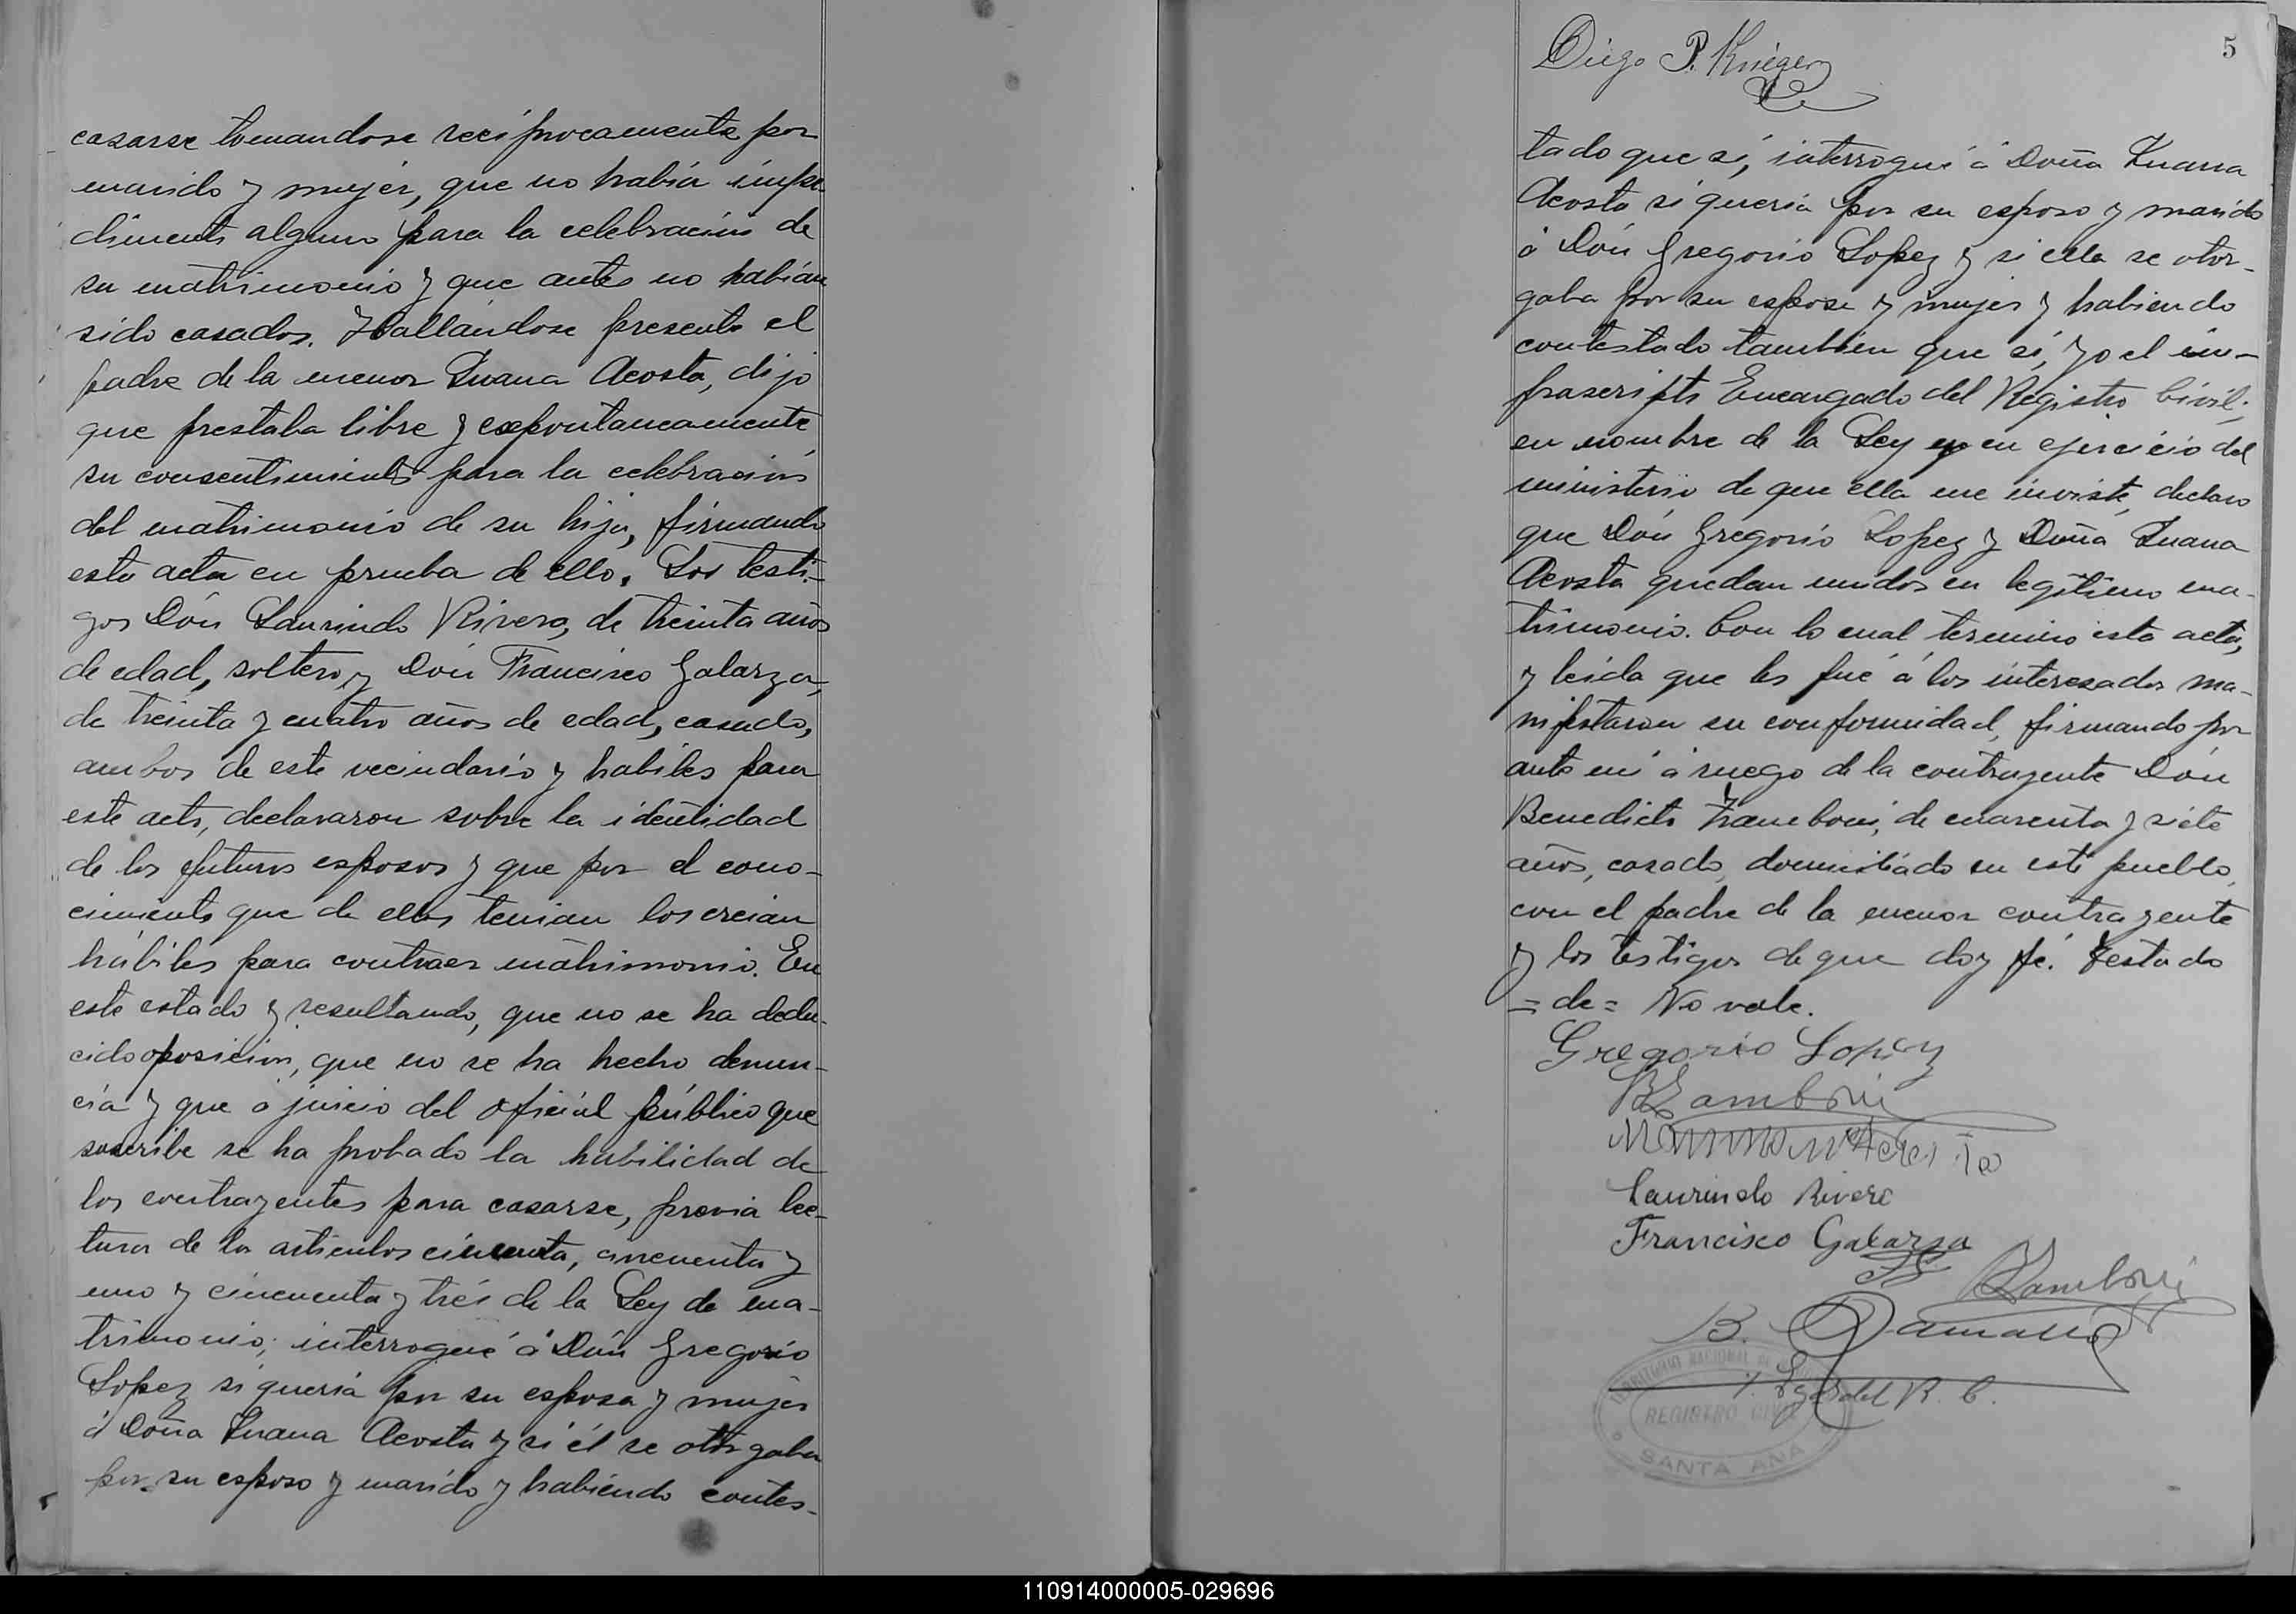 casarse tomandose recíprocamente por
marido y mujér, que no había impe-
dimento alguno para la celebración de
su matrimonio y que antes no habían
sido casados. Hallándose presente el
padre de la menor Juana Acosta, dijo
que prestaba libre y expontaneamente
su consentimiento para la celebración
del matrimonio de su hija, firmando
esta acta en prueba de ello. Los testi-
gos Dón Laurindo Rivero, de treinta años
de edad, soltero y Dón Francisco Galarza,
de treinta y cuatro años de edad, casado,
ambos de este vecindario y habiles para
este acto, declararon sobre la identidad
de los futuros esposos y que por el cono-
cimiento que de ellos tenian los creian
hábiles para contraer matrimonio. En
este estado y resultando, que no se ha dedu-
cido oposición, que no se ha hecho denun-
cia y que a juicio del oficial público que
suscribe se ha probado la habilidad de
los contrayentes para casarse, previa lec-
tura de los artículos cincuenta, cincuenta y
uno y cincuenta y trés de la Ley de ma-
trimonio, interrogué á Dón Gregorio
Lopez si quería por su esposa y mujer
á Doña Juana Acosta y si él se otorgaba
por su esposo y marido y habiendo contes-
Diego P. Krieger
5
tado que sí, interrogué á Doña Juana
Acosta si quería por su esposo y marido
á Dón Gregorio Lopez y si ella se otor-
gaba por su esposa y mujer y habiendo
contestado tambien que sí, yo el in-
frascripto Encargado del Registro Civil,
en nombre de la Ley y en ejercicio del
ministerio de que ella me inviste, declaro
que Dón Gregorio Lopez y Doña Juana
Acosta quedan unidos en legítimo ma-
trimonio. Con lo cual termino esta acta,
y leída que les fué á los interesados ma-
nifestaron su conformidad, firmando por
ante mí á ruego de la contrayente Dón
Benedicto Zamboni, de cuarenta y siete
años, casado, domiciliado en este pueblo,
con el padre de la menor contrayente
y los testigos de que doy fé. Testado
= de = No vale.
Gregorio Lopez
BZamboni
Laurindo Rivero
Francisco Galarza
BZamboni
B.
R. C.
TERRITORIO NACIONAL DE
REGISTRO CIVIL
SANTA ANA
110914000005-029696